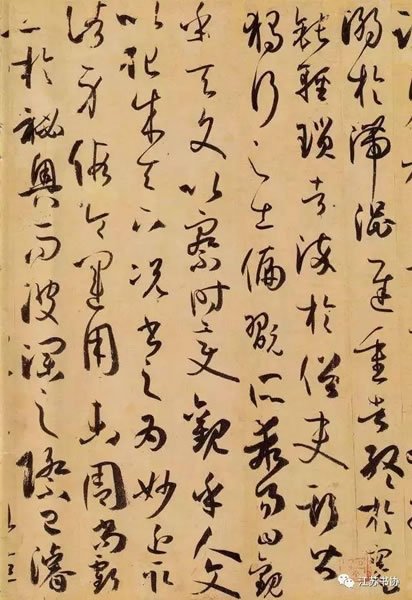 溺於滯澀遲重者終於蹇
鈍輕瑣者染於俗吏斯皆
獨行之士偏翫所乖易曰觀
乎天文以察時變觀乎人文
以化成天下況書之為妙近取
諸身假令運用未周尚虧
工於祕奧而波瀾之際已濬
江苏书协